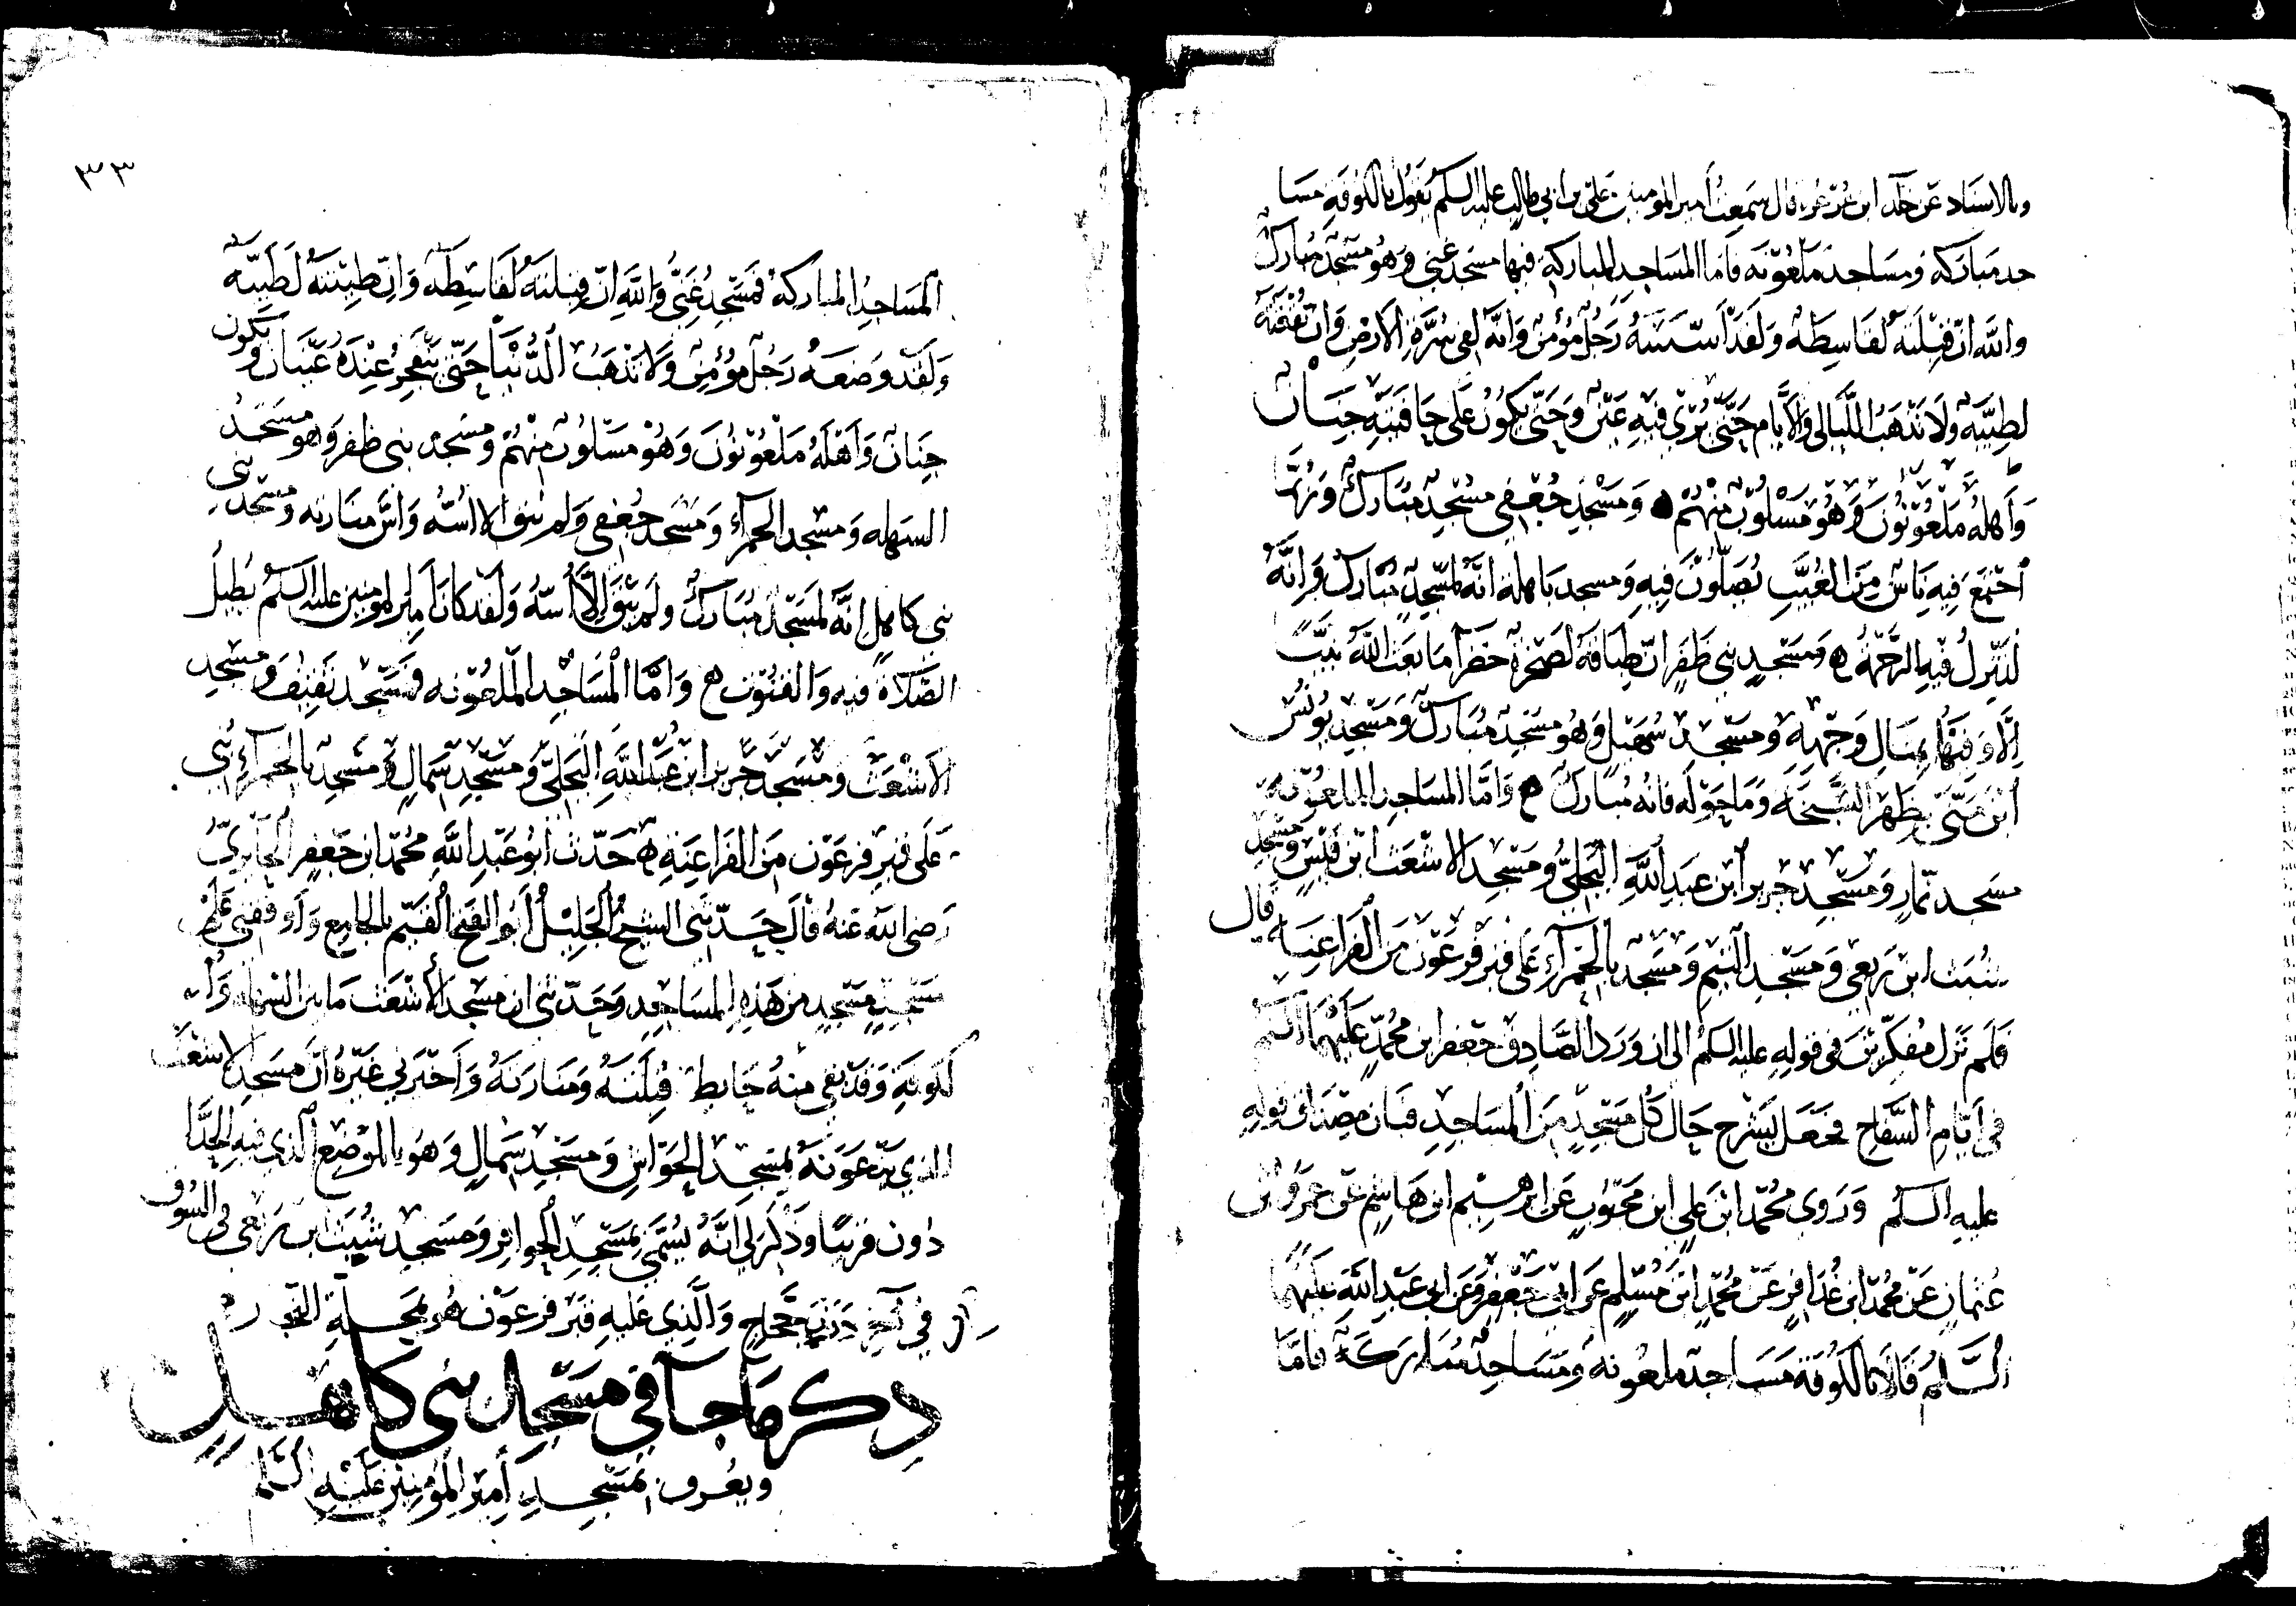 وبالاسناد عن خالد ابن عرعره قال سمعت أمير المومنين علي بن ابي طالب عليه السلم يقول بالكوفه مسا
جد مباركه ومساجد ملعونه فاما المساجد المباركه فيها مسجد غني وهو مسجد مبارك
والله ان قبلته لقاسطه ولقد اسسه رجل مؤمن وانه لفي سرة الارض وان بقعته
لطيبه ولا تذهب الليالي والايام حتى ترى فيه عين وحتى يكون على حافتيه جنتان
وأهله ملعونون وهو مسلوب منهم ۞ ومسجد جعفي مسجد مبارك وربما
اجتمع فيه ناس من الغيب يصلون فيه ومسجد باهله انه لمسجد مبارك وانه
لتنزل فيه الرحمة ه ومسجد بني ظفر ان طباقه لصخرة خضرا ما بعث الله نبيا
الا وفيها تمثال وجهه ومسجد سهيل وهو مسجد مبارك ومسجد يونس
ابن متى بظهر السبخه وما حوله فانه مبارك ه واما المساجد الملعونه
مسجد تمار ومسجد جرير ابن عبد الله البجلي ومسجد الاشعث ابن قيس ومسجد
شبث ابن ربعي ومسجد التيم ومسجد بالحمرآء على قبر فرعون من الفراعنه قال
فلم نزل مفكرين في قوله عليه السلم الى ان ورد الصادق جعفر ابن محمد عليهما السلم
في ايام السفاح فجعل يشرح حال كل مسجد من المساجد فبان مصداق قوله
عليه السلم وروى محمد ابن علي ابن محبوب عن ابرهيم ابن هاشم عن عمرو ابن
عثمان عن محمد ابن عذافر عن محمد ابن مسلم عن ابي جعفر وعن ابي عبد الله عليهما
السلم قالا بالكوفة مساجد ملعونه ومساجد مباركة فاما
٣٣
المساجد المباركة فمسجد غني والله ان قبلته لقاسطه وان طينته لطيبه
ولقد وضعه رجل مؤمن ولا تذهب الدنيا حتى تنفجر عنده عينان ويكون
جنتان وأهله ملعونون وهو مسلوب منهم ومسجد بني ظفر وهو مسجد
السهله ومسجد الحمرآء ومسجد جعفي ولم يبق الا اسه واس منارته ومسجد بني
بني كاهل انه لمسجد مبارك ولم يبق الا أسه ولقد كان أمير المومنين عليه السلم يطيل
الصلاة فيه والقنوت ه واما المساجد الملعونه فمسجد ثقيف ومسجد
الاشعث ومسجد جرير ابن عبد الله البجلي ومسجد سمال ومسجد بالحمرآء بني
على قبر فرعون من الفراعنه ه حدث ابو عبد الله محمد ابن جعفر الحايري
رضي الله عنه قال حدثني الشيخ الجليل أبو الفتح القيم بالجامع وأوقفني على
مسجد مسجد من هذه المساجد وحدثني ان مسجد الأشعث ما بين السهله و
الكوفة وقد بقي منه حايط قبلته ومنارته وأخبرني غيره أن مسجد الاشعث
الذي يدعونه بمسجد الجواشن ومسجد سمال وهو بالموضع الذي فيه الحدا
دون قريبا وذكر لي انه يسمى بمسجد الجوافر ومسجد شبث ابن ربعي في السوق
في آخر درب حجاج والذي عليه قبر فرعون هو بمحلة النجار
ذكر ما جآ في مسجد بني كاهل
ويعرف بمسجد أمير المؤمنين عليه السلم